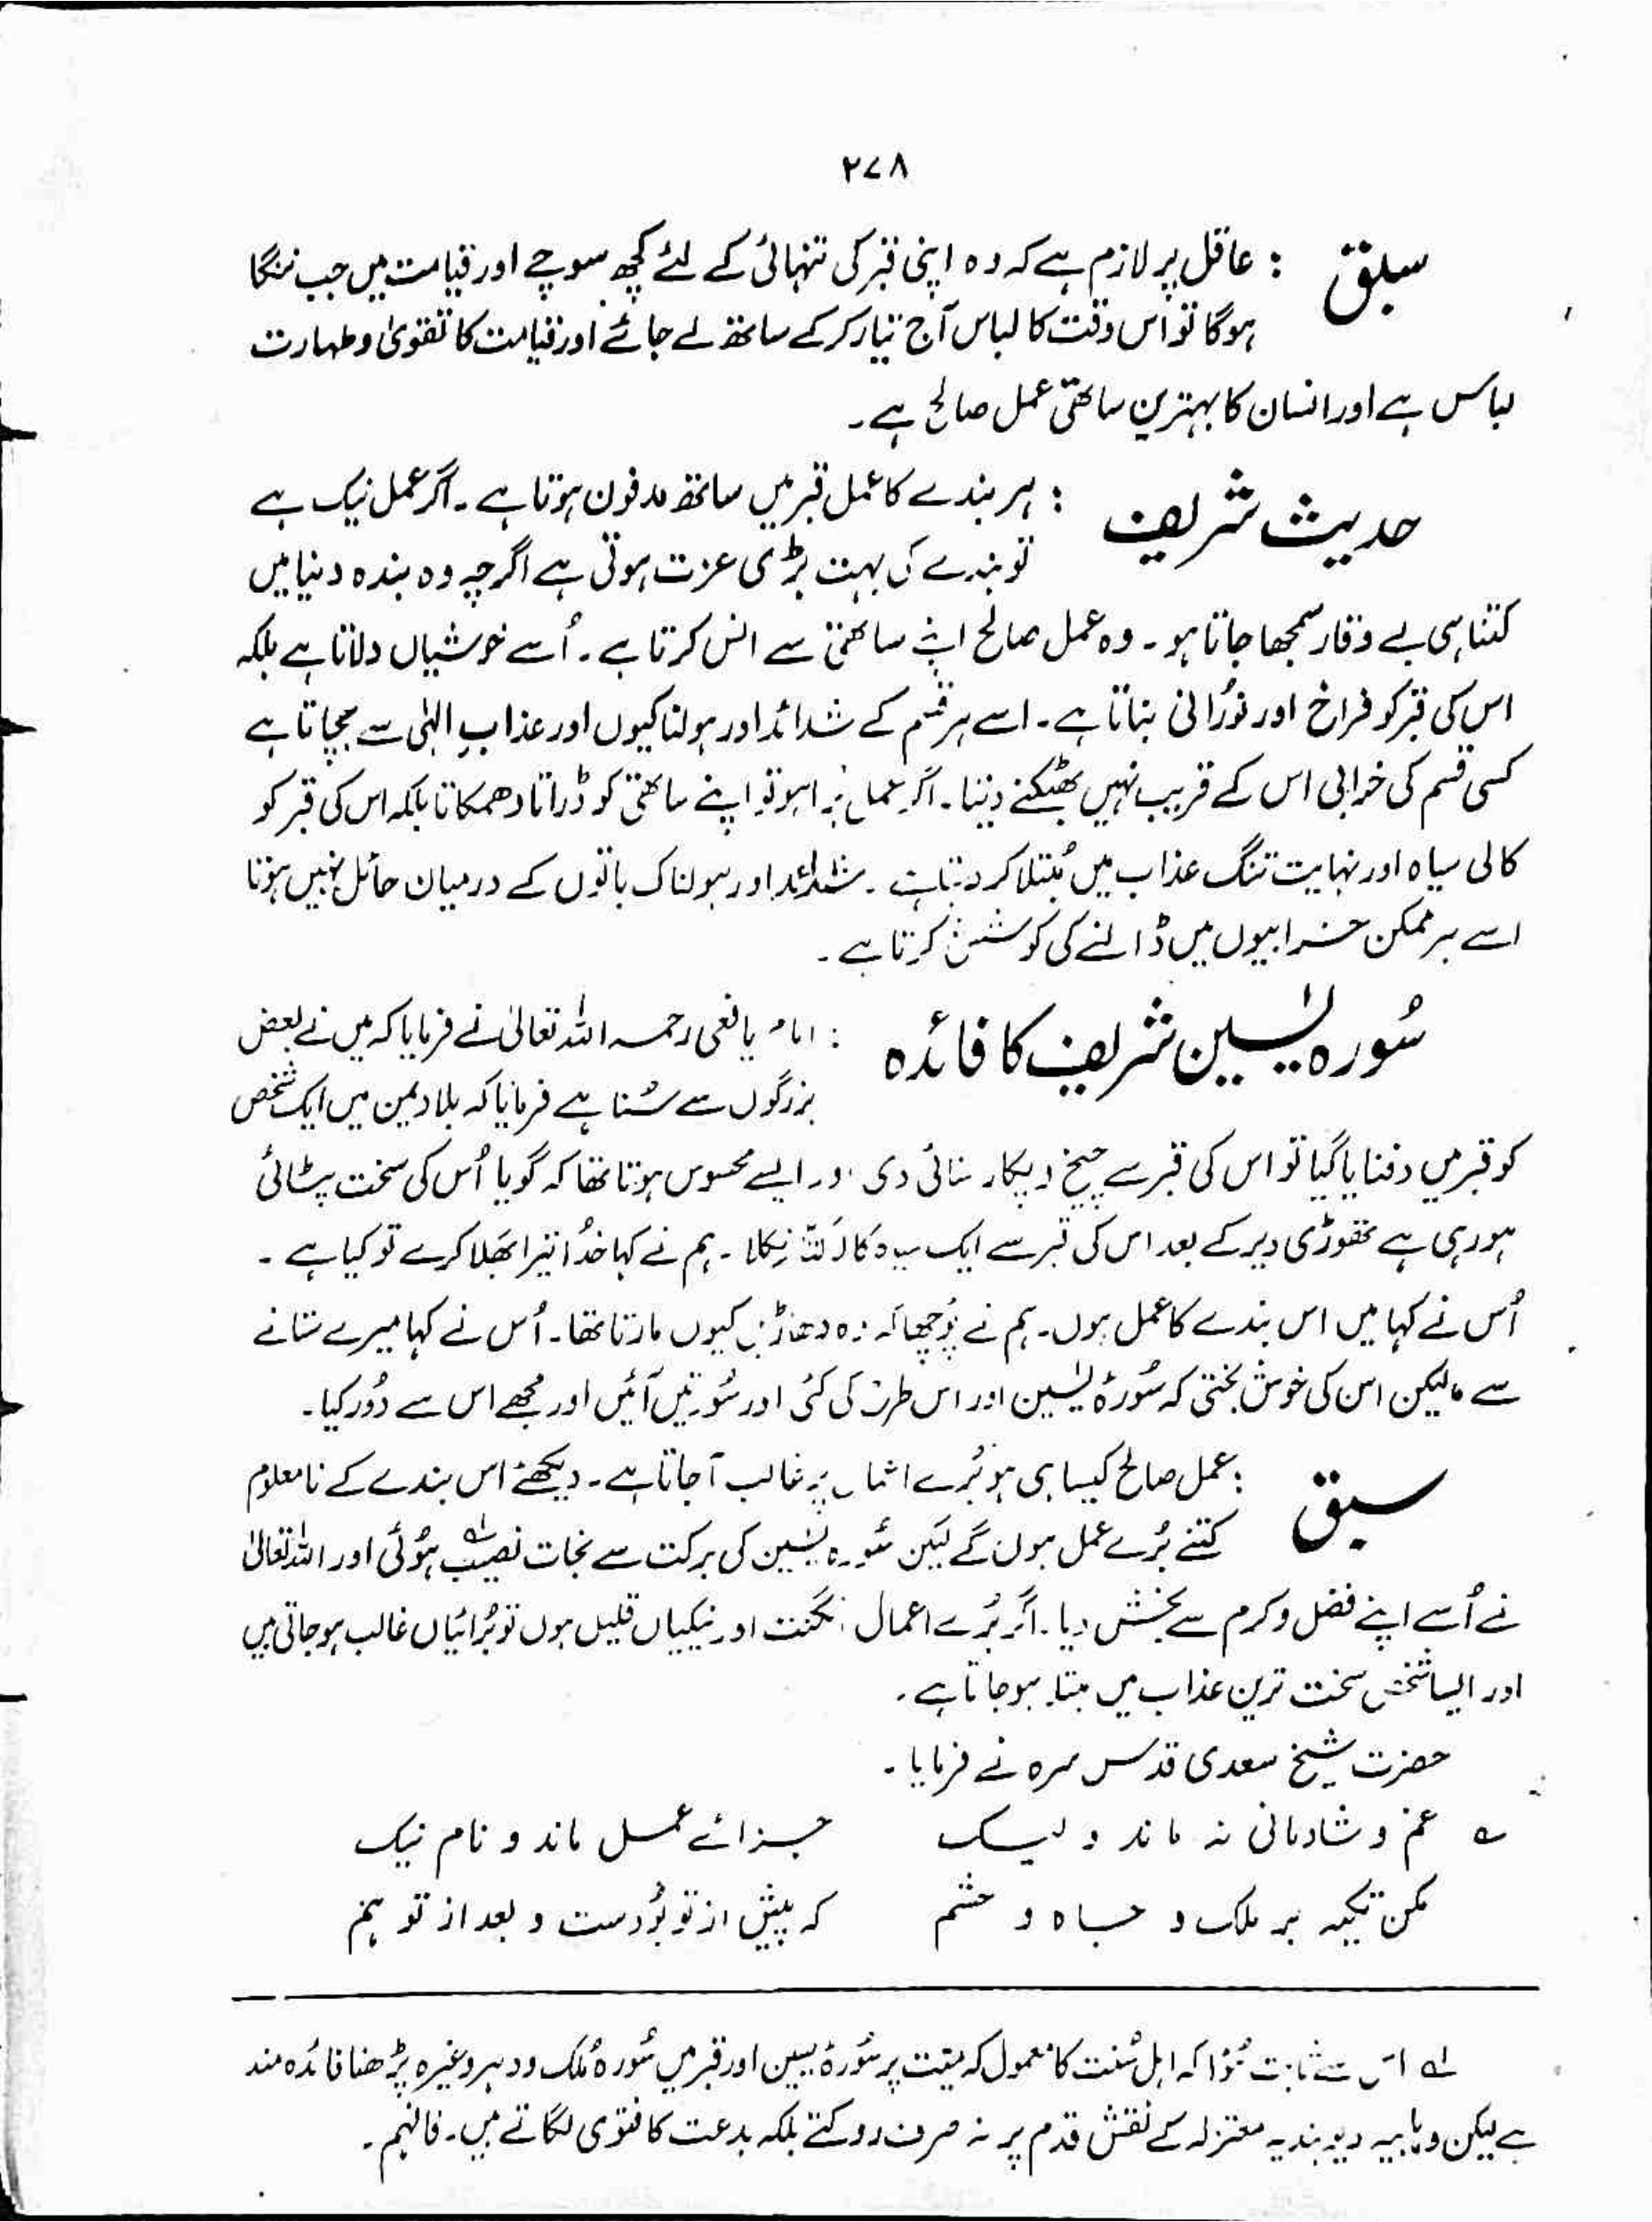 ۲۷۸
سبق : عاقل پر لازم ہے کہ وہ اپنی قبر کی تنہائی کے لئے کچھ سوچے اور قیامت میں جب ننگا
ہوگا تو اس وقت کا لباس آج تیار کرکے ساتھ لے جائے اور قیامت کا تقویٰ و طہارت
لباس ہے اور انسان کا بہترین ساتھی عمل صالح ہے۔
حدیث شریف : ہر بندے کا عمل قبر میں ساتھ مدفون ہوتا ہے۔ اگر عمل نیک ہے
تو بندے کی بہت بڑی عزت ہوتی ہے اگرچہ وہ بندہ دنیا میں
کتنا ہی بے وقار سمجھا جاتا ہو۔ وہ عمل صالح اپنے ساتھی سے انس کرتا ہے۔ اُسے خوشیاں دلاتا ہے بلکہ
اس کی قبر کو فراخ اور نوُرانی بناتا ہے۔ اسے ہر قسم کے شدائد اور ہولناکیوں اور عذابِ الہٰی سے بچاتا ہے
کسی قسم کی خرابی اس کے قریب نہیں بھٹکنے دیتا۔ اگر عمل بُرا ہو تو اپنے ساتھی کو ڈراتا دھمکاتا بلکہ اس کی قبر کو
کالی سیاہ اور نہایت تنگ عذاب میں مُبتلا کر دیتا ہے۔ شدائد اور ہولناک باتوں کے درمیان حائل نہیں ہوتا
اسے ہر ممکن خرابیوں میں ڈالنے کی کوشش کرتا ہے۔
سُورہ یٰسین شریف کا فائدہ : امام یافعی رحمہ اللہ تعالیٰ نے فرمایا کہ میں نے بعض
بزرگوں سے سُنا ہے فرمایا کہ بلاد یمن میں ایک شخص
کو قبر میں دفنایا گیا تو اس کی قبر سے چیخ و پکار سنائی دی اور ایسے محسوس ہوتا تھا کہ گویا اُس کی سخت پٹائی
ہو رہی ہے تھوڑی دیر کے بعد اس کی قبر سے ایک سیاہ کالا کتّا نِکلا۔ ہم نے کہا خدُا تیرا بَھلا کرے تو کیا ہے۔
اُس نے کہا میں اس بندے کا عمل ہوں۔ ہم نے پوُچھا کہ وہ دھاڑیں کیوں مارتا تھا۔ اُس نے کہا میرے ستانے
سے، لیکن اس کی خوش بختی کہ سُورۂ یٰسین اور اس طرح کی کئی اور سُورتیں آئیں اور مجھے اس سے دُور کیا۔
سبق : عمل صالح کیسا ہی ہو بُرے اعمال پر غالب آجاتا ہے۔ دیکھئے اس بندے کے نامعلوم
کتنے بُرے عمل ہوں گے لیکن سُورہ یٰسین کی برکت سے نجات نصیب ہوُئی اور اللہ تعالیٰ
نے اُسے اپنے فضل و کرم سے بخش دیا۔ اگر بُرے اعمال ان گنت اور نیکیاں قلیل ہوں تو بُرائیاں غالب ہو جاتی ہیں
اور ایسا شخص سخت ترین عذاب میں مبتلا ہو جاتا ہے۔
حضرت شیخ سعدی قدس سرہ نے فرمایا۔
ے غم و شادمانی نہ ماند و لیک جزائے عمل ماند و نام نیک
مکن تکیہ بر ملک و جاہ و حشم کہ پیش از تو بوُدست و بعد از تو ہم
لے اس سے ثابت ہُوا کہ اہل سُنت کا معمول کہ میّت پر سُورۂ یٰسین اور قبر میں سُورہ مُلک و دہر وغیرہ پڑھنا فائدہ مند
ہے لیکن وہابیہ دیوبندیہ معتزلہ کے نقش قدم پر نہ صرف روکتے بلکہ بدعت کا فتویٰ لگاتے ہیں۔ فافہم۔